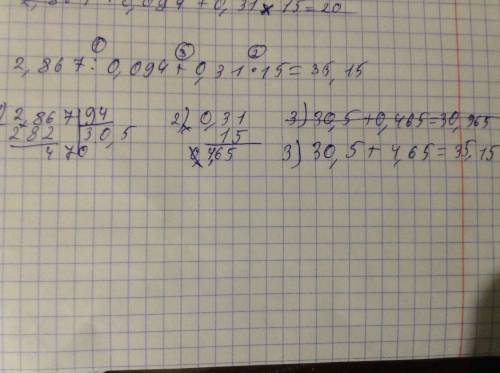 2,867 : 0,094 + 0,31 × 15 = 20
① ③ ②
2,867 : 0,094 + 0,31 · 15 = 35,15
1) 2,867 | 94
282 | 30,5
470
2) 0,31
× 15
0,465
3) 30,5 + 0,465 = 30,965
3) 30,5 + 4,65 = 35,15